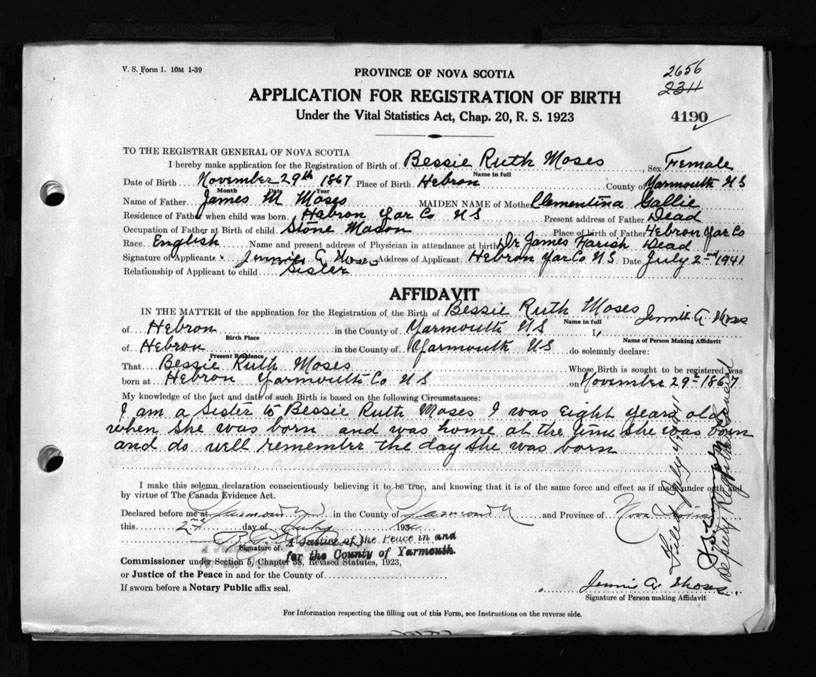 V. S. Form 1. 10M 1-39
2656
2311
PROVINCE OF NOVA SCOTIA
APPLICATION FOR REGISTRATION OF BIRTH
Under the Vital Statistics Act, Chap. 20, R. S. 1923
4190
TO THE REGISTRAR GENERAL OF NOVA SCOTIA
I hereby make application for the Registration of Birth of Bessie Ruth Moses Sex Female
Name in full
Date of Birth November 29th 1867 Place of Birth Hebron County of Yarmouth NS
Month Day Year
Name of Father James M Moses MAIDEN NAME of Mother Clementina Gallie
Residence of Father when child was born Hebron Yar Co NS Present address of Father Dead
Occupation of Father at Birth of child Stone Mason Place of birth of Father Hebron Yar Co
Race English Name and present address of Physician in attendance at birth Dr James Farish Dead
Signature of Applicant Jennie A. Moses Address of Applicant Hebron Yar Co NS Date July 2nd 1941
Relationship of Applicant to child Sister
AFFIDAVIT
IN THE MATTER of the application for the Registration of the Birth of Bessie Ruth Moses
Name in full
of Hebron in the County of Yarmouth NS I, Jennie A. Moses
Birth Place
Name of Person Making Affidavit
of Hebron in the County of Yarmouth NS do solemnly declare:
Present Residence
That Bessie Ruth Moses Whose Birth is sought to be registered was
born at Hebron Yarmouth Co NS on November 29th 1867
My knowledge of the fact and date of such Birth is based on the following Circumstances:
I am a Sister to Bessie Ruth Moses I was eight years old
when she was born and was home at the time she was born
and do well remember the day she was born
I make this solemn declaration conscientiously believing it to be true, and knowing that it is of the same force and effect as if made under oath and
by virtue of The Canada Evidence Act.
Declared before me at Yarmouth in the County of Yarmouth and Province of Nova Scotia
this 2nd day of July 1941
Signature of
A Justice of the Peace in and
for the County of Yarmouth
Commissioner under Section 5, Chapter 38, Revised Statutes, 1923,
or Justice of the Peace in and for the County of
If sworn before a Notary Public affix seal.
Jennie A. Moses
Signature of Person making Affidavit
For Information respecting the filling out of this Form, see Instructions on the reverse side.
Deputy Registrar General